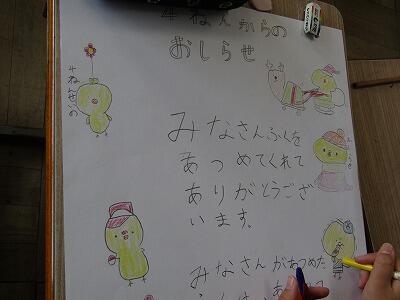 4ねんからの
おしらせ
みなさんふくを
あつめてくれて
ありがとうござ
います。
みなさんがあつめた